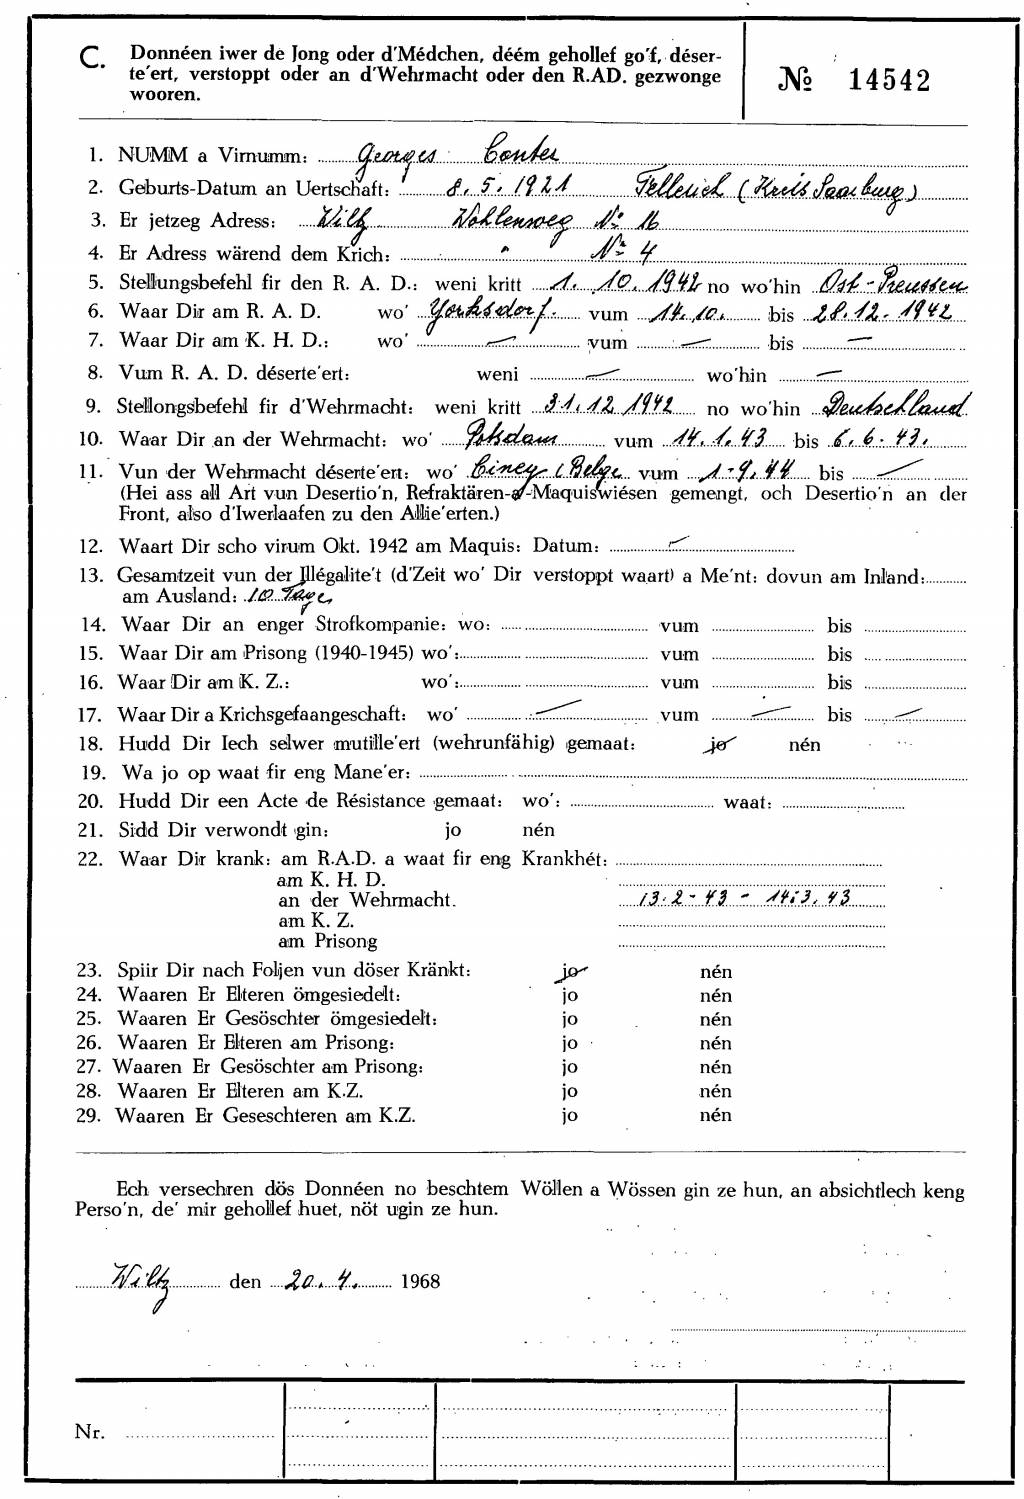 C. Donnéen iwer de Jong oder d'Médchen, déém gehollef go'f, déser-
te'ert, verstoppt oder an d'Wehrmacht oder den R.AD. gezwonge
wooren.
№ 14542
1. NUMM a Virnumm: Georges Conter
2. Geburts-Datum an Uertschaft: 8. 5. 1921 Fellerich (Kreis Saarburg)
3. Er jetzeg Adress: Wiltz Wohlenweg No 16
4. Er Adress wärend dem Krich: " No 4
5. Stellungsbefehl fir den R. A. D.: weni kritt 1. 10. 1942 no wo'hin Ost-Preussen
6. Waar Dir am R. A. D. wo' Yorksdorf. vum 14. 10. bis 28. 12. 1942
7. Waar Dir am K. H. D.: wo' — vum — bis —
8. Vum R. A. D. déserte'ert: weni — wo'hin —
9. Stellongsbefehl fir d'Wehrmacht: weni kritt 31. 12. 1942 no wo'hin Deutschland
10. Waar Dir an der Wehrmacht: wo' Potsdam vum 14. 1. 43 bis 6. 6. 43.
11. Vun der Wehrmacht déserte'ert: wo' Ciney (Belge vum 1-9. 44 bis —
(Hei ass all Art vun Desertio'n, Refraktären-a-Maquiswiésen gemengt, och Desertio'n an der
Front, also d'Iwerlaafen zu den Allie'erten.)
12. Waart Dir scho virum Okt. 1942 am Maquis: Datum: —
13. Gesamtzeit vun der Illégalite't (d'Zeit wo' Dir verstoppt waart) a Me'nt: dovun am Inland:
am Ausland: 10 Tage,
14. Waar Dir an enger Strofkompanie: wo: vum bis
15. Waar Dir am Prisong (1940-1945) wo': vum bis
16. Waar Dir am K. Z.: wo': vum bis
17. Waar Dir a Krichsgefaangeschaft: wo' — vum — bis —
18. Hudd Dir Iech selwer mutille'ert (wehrunfähig) gemaat: jo nén
19. Wa jo op waat fir eng Mane'er:
20. Hudd Dir een Acte de Résistance gemaat: wo': waat:
21. Sidd Dir verwondt gin: jo nén
22. Waar Dir krank: am R.A.D. a waat fir eng Krankhét:
am K. H. D.
an der Wehrmacht. 13. 2 - 43 - 14. 3. 43
am K. Z.
am Prisong
23. Spiir Dir nach Foljen vun döser Kränkt: jo nén
24. Waaren Er Elteren ömgesiedelt: jo nén
25. Waaren Er Gesöschter ömgesiedelt: jo nén
26. Waaren Er Elteren am Prisong: jo nén
27. Waaren Er Gesöschter am Prisong: jo nén
28. Waaren Er Elteren am K.Z. jo nén
29. Waaren Er Geseschteren am K.Z. jo nén
Ech versechren dös Donnéen no beschtem Wöllen a Wössen gin ze hun, an absichtlech keng
Perso'n, de' mir gehollef huet, nöt ugin ze hun.
Wiltz den 20. 4. 1968
Nr.